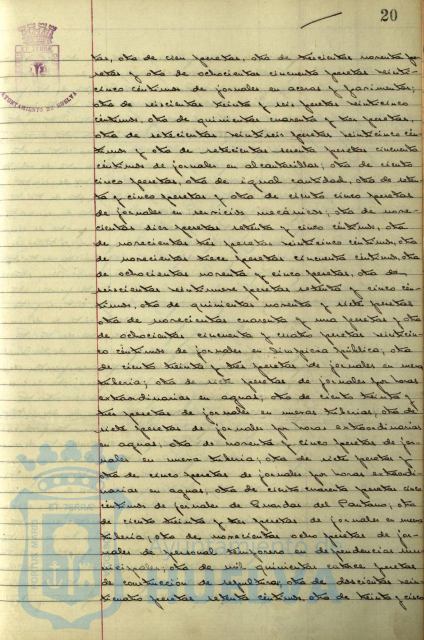 20
AYUNTAMIENTO DE HUELVA
tas, otra de cien pesetas, otra de trescientas noventa pe
setas y otra de ochocientas cincuenta pesetas veinti-
cinco céntimos de jornales en aceras y pavimentos;
otra de seiscientas treinta y seis pesetas veinticinco
céntimos, otra de quinientas cuarenta y tres pesetas,
otra de setecientas veintiseis pesetas veinticinco cén-
timos y otra de setecientas sesenta pesetas cincuenta
céntimos de jornales en alcantarillas; otra de ciento
cinco pesetas, otra de igual cantidad, otra de seten-
ta y cinco pesetas y otra de ciento cinco pesetas
de jornales en servicios mecánicos; otra de nove-
cientas diez pesetas setenta y cinco céntimos, otra
de novecientas tres pesetas veinticinco céntimos, otra
de novecientas trece pesetas cincuenta céntimos, otra
de ochocientas noventa y cinco pesetas, otra de
seiscientas veintinueve pesetas setenta y cinco cén-
timos, otra de quinientas noventa y siete pesetas
otra de novecientas cuarenta y una pesetas y otra
de ochocientas cincuenta y cuatro pesetas veinticin-
co céntimos de jornales en limpieza pública; otra
de ciento treinta y tres pesetas de jornales en nueva
tubería; otra de siete pesetas de jornales por horas
extraordinarias en aguas; otra de ciento treinta y
tres pesetas de jornales en nuevas tuberías, otra de
siete pesetas de jornales por horas extraordinarias
en aguas, otra de noventa y cinco pesetas de jor-
nales en nueva tubería; otra de siete pesetas y
otra de cinco pesetas de jornales por horas extraordi-
narias en aguas, otra de ciento cuarenta pesetas cinco
céntimos de jornales de Guardas del Pantano; otra
de ciento treinta y tres pesetas de jornales en nueva
tubería; otra de novecientas ocho pesetas de jor-
nales de personal temporero en dependencias mu-
nicipales; otra de mil quinientas catorce pesetas
de construcción de sepulturas; otra de doscientas vein-
ticuatro pesetas setenta céntimos, otra de treinta y cinco